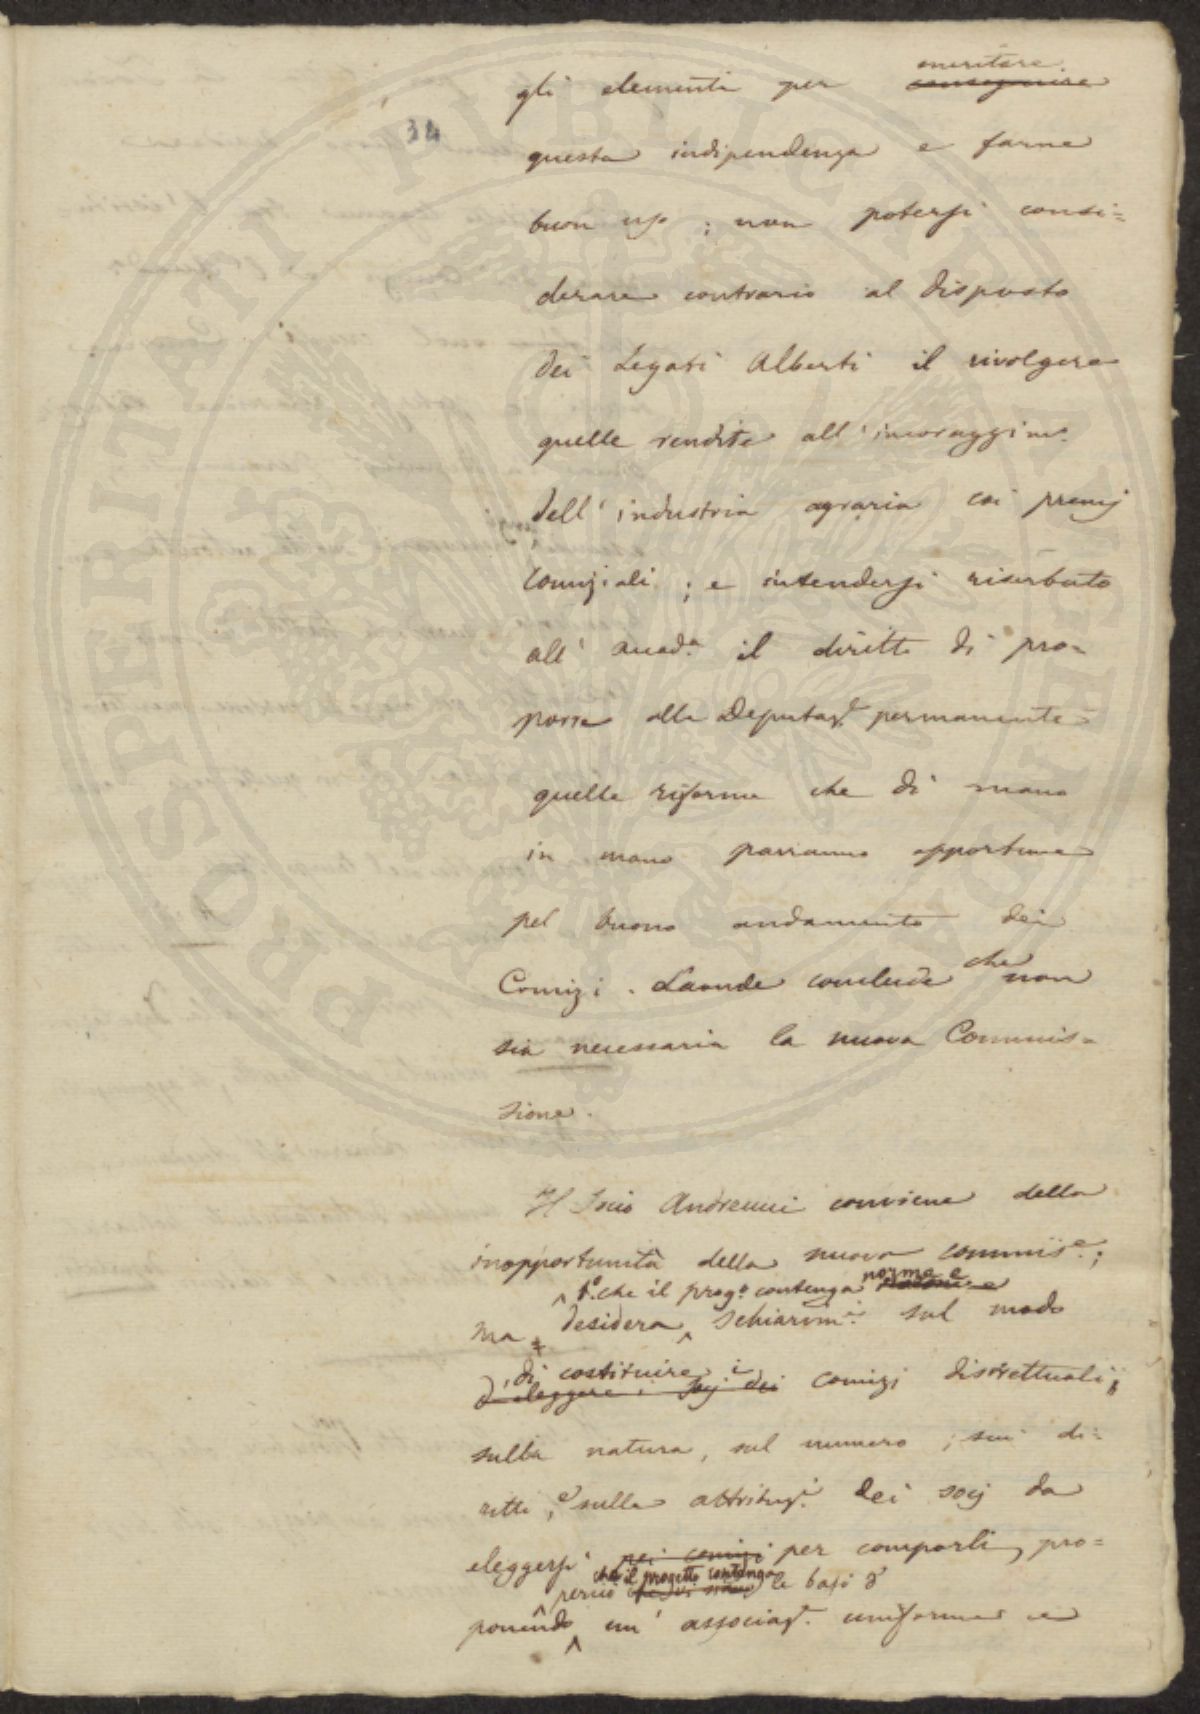 34
gli elementi per meritare conseguire
questa indipendenza e farne
buon uso ; non potersi consi=
derare contrario al disposto
dei Legati Alberti il rivolgere
quelle rendite all'incoraggim.º
dell'industria agraria coi premj
comiziali ; e intendersi riserbato
all' Accad.ª il diritto di pro=
porre alla Deputaz.e permanente
quelle riforme che di mano
in mano parranno opportune
pel buono andamento dei
Comizi . Laonde conclude che non
sia necessaria la nuova Commis=
sione .
Il Socio Andreucci conviene della
inopportunità della nuova commiss.e ;
1.º che il prog.º contenga norme e
ma desidera schiarim.i sul modo
di costituire i
d'eleggere i socj dei comizi distrettuali ;
sulla natura, sul numero, sui di=
ritti, e sulle attribuz.i dei socj da
eleggersi pei comizi per comporli, pro=
che il progetto contenga
perciò le basi d'
ponendo un' associaz.e uniforme e
PROSPERITATI PUBLICAE AUGENDAE